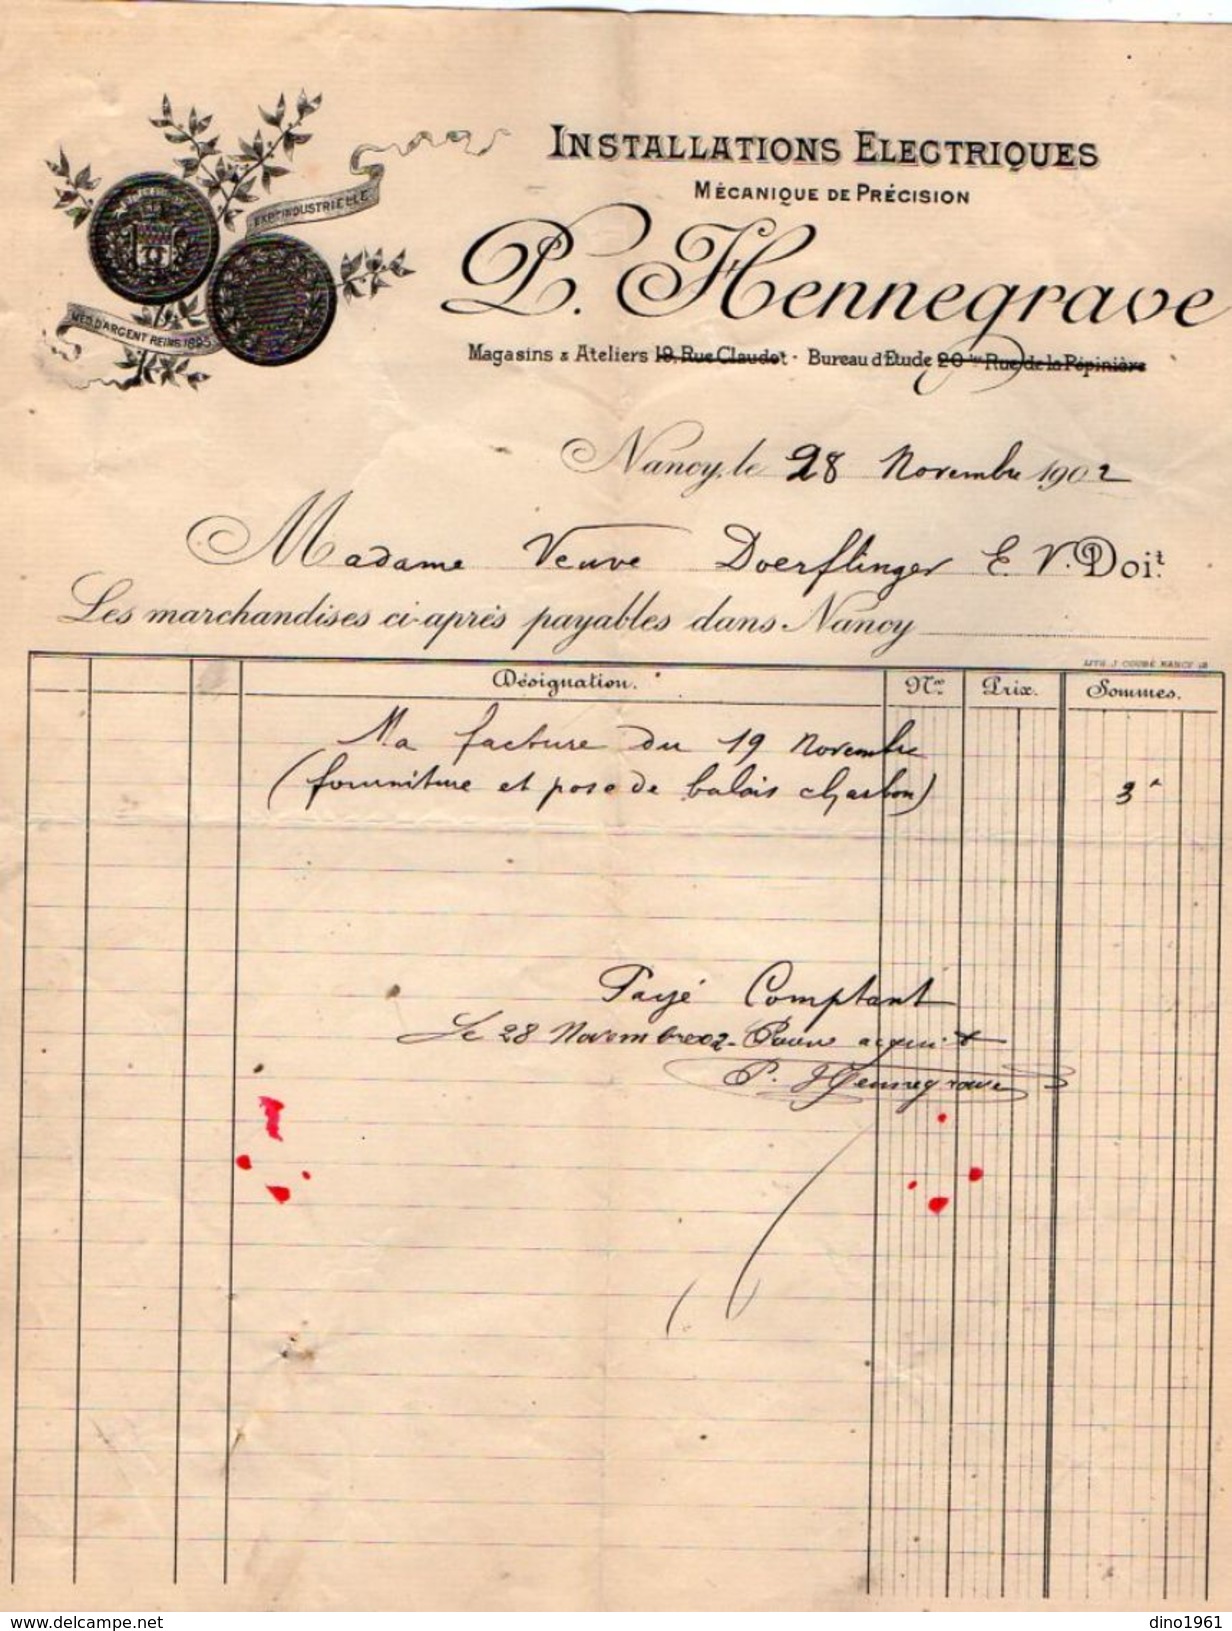 EXP. INDUSTRIELLE
MED. D'ARGENT REIMS 1895
INSTALLATIONS ELECTRIQUES
MÉCANIQUE DE PRÉCISION
P. Hennegrave
Magasins & Ateliers 19, Rue Claudot · Bureau d'Etude 20 bis Rue de la Pépinière
Nancy, le 28 Novembre 1902
Madame Veuve Doerflinger E. V. Doit.
Les marchandises ci-après payables dans Nancy
LITH. J. COUBÉ NANCY
Désignation. Nos Prix. Sommes.
Ma facture du 19 Novembre
(fourniture et pose de balais charbon) 3
Payé Comptant
Le 28 Novembre 02 - Pour acquit
P. Hennegrave
www.delcampe.net
dino1961